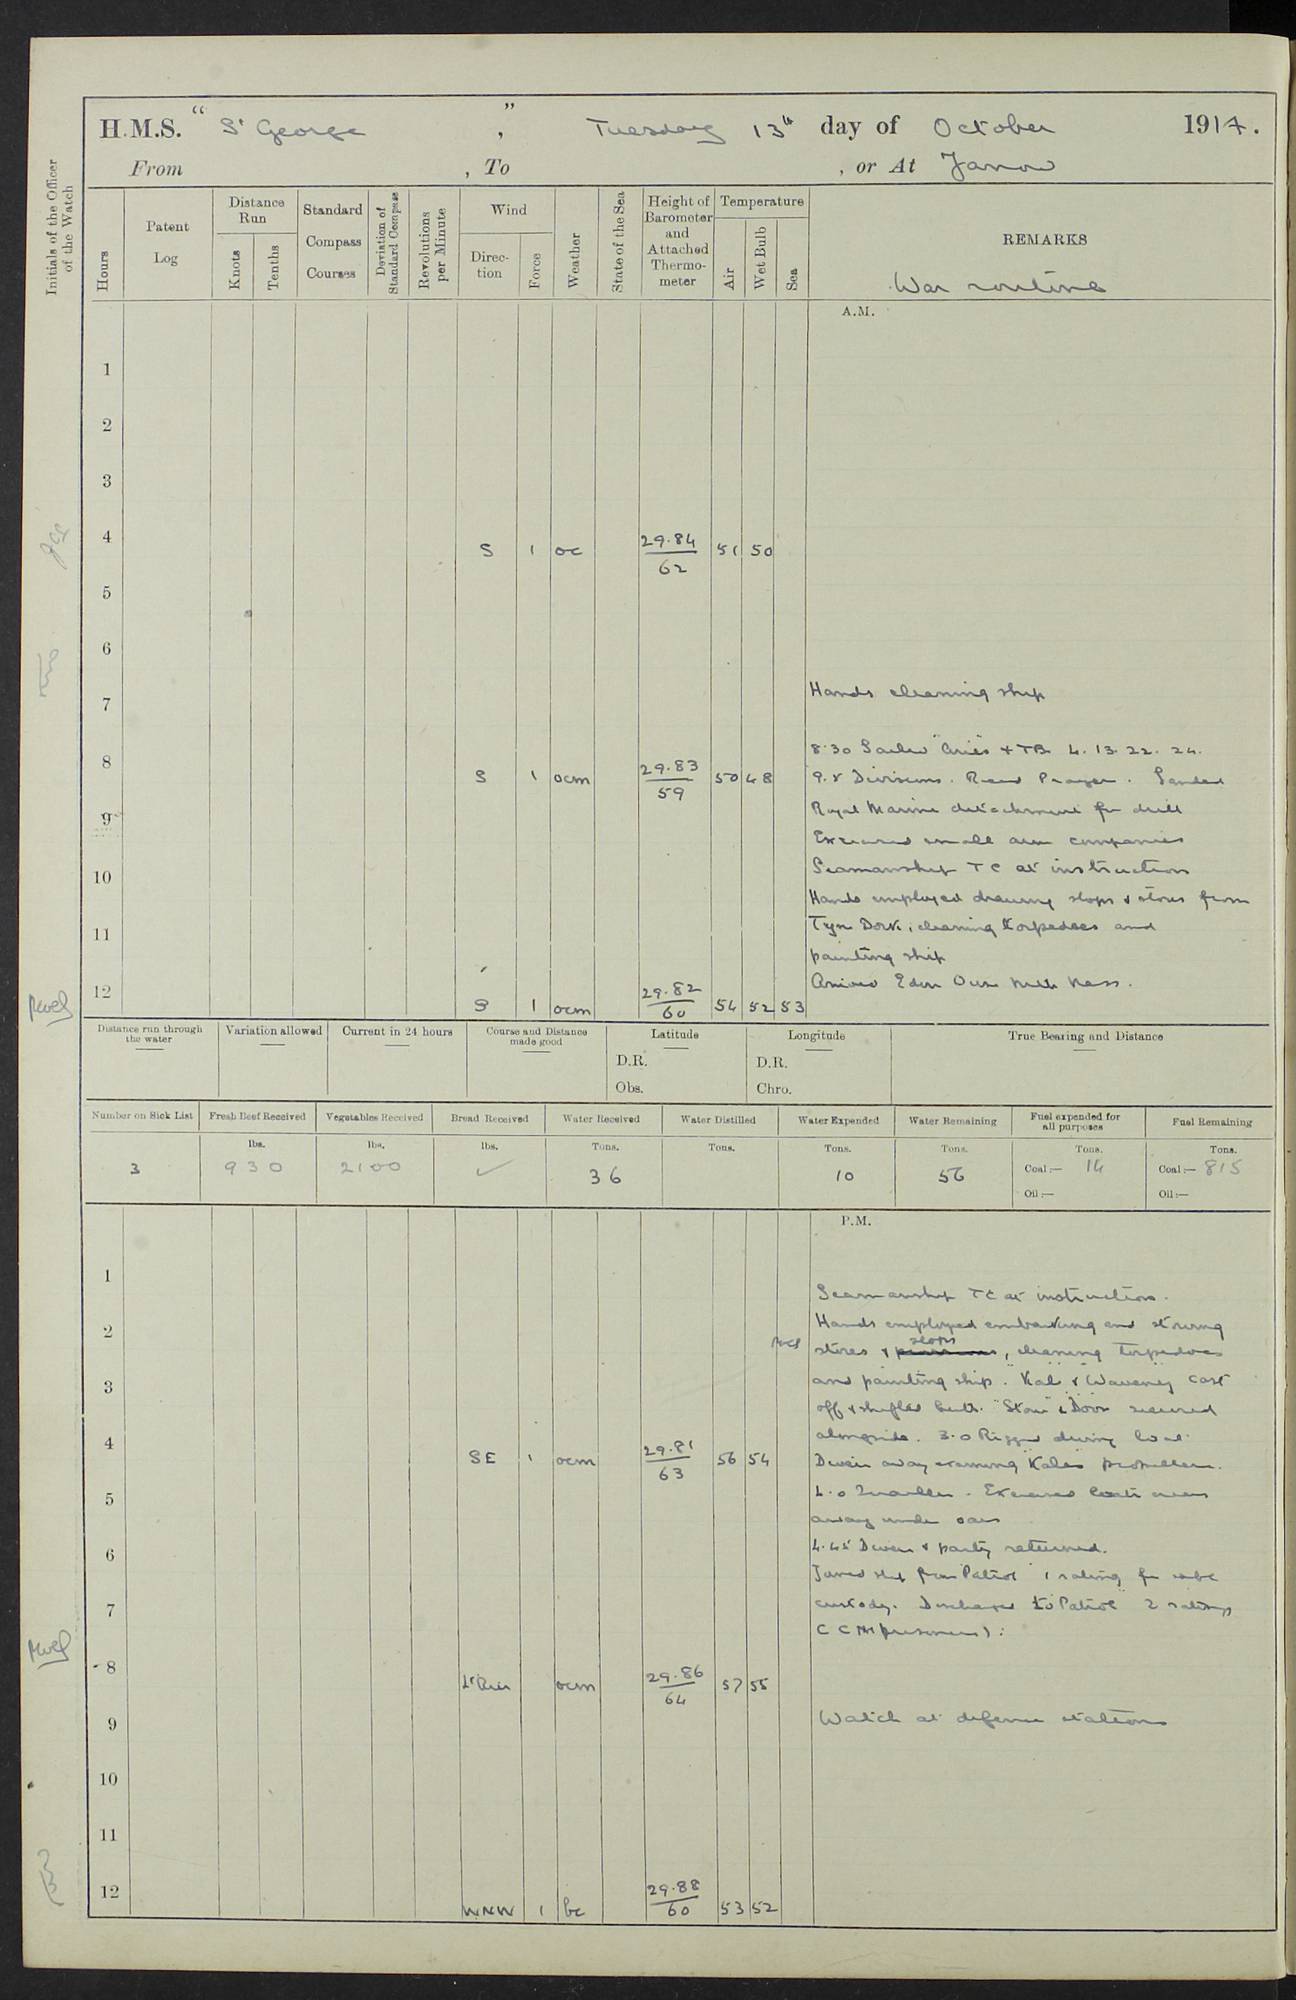 H.M.S. “ St George ” , Tuesday 13th day of October 1914.
From , To , or At Jarrow
Initials of the Officer of the Watch
Hours
Patent Log
Distance Run
Knots
Tenths
Standard Compass Courses
Deviation of Standard Compass
Revolutions per Minute
Wind
Direction
Force
Weather
State of the Sea
Height of Barometer and Attached Thermometer
Temperature
Air
Wet Bulb
Sea
REMARKS
War routine
A.M.
1
2
3
4 S 1 oc 29.84 62 51 50
5
6
Hands cleaning ship
7
8.30 Sailed "Aries" + TB 4. 13. 22. 24.
8 S 1 ocm 29.83 59 50 48
9.5 Divisions. Read Prayers. Landed
Royal Marine detachment for drill
9
Exercised small arm companies
Seamanship TC at instruction
10
Hands employed drawing slops & stores from
Tyne Dock, cleaning torpedoes and
11
painting ship
Arrived Eden Ouse Ness.
12 S 1 ocm 29.82 60 54 52 53
Distance run through the water
Variation allowed
Current in 24 hours
Course and Distance made good
Latitude
D.R.
Obs.
Longitude
D.R.
Chro.
True Bearing and Distance
Number on Sick List
Fresh Beef Received
Vegetables Received
Bread Received
Water Received
Water Distilled
Water Expended
Water Remaining
Fuel expended for all purposes
Fuel Remaining
lbs. lbs. lbs. Tons. Tons. Tons. Tons. Tons. Tons.
3 930 2100 ✓ 36 10 56 Coal:— 14 Coal:— 815
Oil:— Oil:—
P.M.
1
Seamanship TC at instruction.
2
Hands employed embarking and stowing
stores & slops, cleaning torpedoes
3
and painting ship. "Kale" & "Waveney" cast
off & shifted berth. "Stour" & "Doon" secured
alongside. 3.0 Rigged diving boat.
4 SE 1 ocm 29.81 63 56 54
Divers away examining "Kales" propellers.
5
4.0 Quarters. Exercised boats crews
away under oars
6
4.45 Divers & party returned.
Joined ship from "Patrol" 1 rating for safe
7
custody. Discharged to "Patrol" 2 ratings
(C M prisoners).
8 Lt Airs ocm 29.86 64 57 55
9
Watch at defence stations
10
11
12 WNW 1 bc 29.88 60 53 52